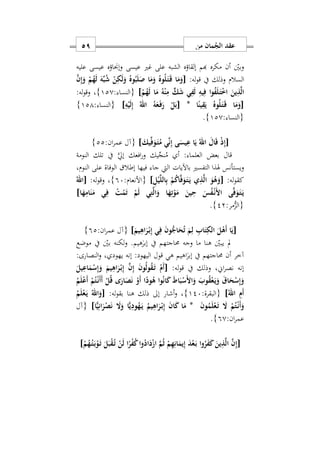 عقد الجُمان من
٥٩
وبيَّن أن مكره بهم إلقاؤه الشبه على غير عيسى وإنجاؤه عيسى عليه
السلام وذلك في قوله: [وَمَا قَتَلُوهُ وَمَا صَلَبُوهُ وَلَكِنْ شُبِّهَ لَهُمْ وَإِنَّ
الَّذِينَ اخْتَلَفُوا فِيهِ لَفِي شَكٍّ مِنْهُ مَا لَهُمْ] {النساء:١٥٧}، وقوله:
[وَمَا قَتَلُوهُ يَقِينًا * بَلْ رَفَعَهُ اللهُ إِلَيْهِ] {النساء:١٥٨}
{النساء:١٥٧}.
[إِذْ قَالَ اللهُ يَا عِيسَى إِنِّي مُتَوَفِّيكَ] {آل عمران:٥٥}
قال بعض العلماء: أي مُنيمُك ورافعك إليَّ في تلك النومة
ويستأنس لهذا التفسير بالآيات التي جاء فيها إطلاق الوفاة على النوم،
كقوله: [وَهُوَ الَّذِي يَتَوَفَّاكُمْ بِاللَّيْلِ] {الأنعام:٦٠}، وقوله: [اللهُ
يَتَوَفَّى الأَنْفُسَ حِينَ مَوْتِهَا وَالَّتِي لَمْ تَمُتْ فِي مَنَامِهَا]
{الزُّمر:٤٢}.
[يَا أَهْلَ الكِتَابِ لِمَ تُحَاجُّونَ فِي إِبْرَاهِيمَ] {آل عمران:٦٥}
لم يبيِّن هنا ما وجه محاجتهم في إبراهيم. ولكنه بيَّن في موضع
آخر أن محاجتهم في إبراهيم هي قول اليهود: إنه يهودي، والنصارى:
إنه نصراني، وذلك في قوله: [أَمْ تَقُولُونَ إِنَّ إِبْرَاهِيمَ وَإِسْمَاعِيلَ
وَإِسْحَاقَ وَيَعْقُوبَ وَالأَسْبَاطَ كَانُوا هُودًا أَوْ نَصَارَى قُلْ أَأَنْتُمْ أَعْلَمُ
أَمِ اللهُ] {البقرة:١٤٠}، وأشار إلى ذلك هنا بقوله: [وَاللهُ يَعْلَمُ
وَأَنْتُمْ لَا تَعْلَمُونَ * مَا كَانَ إِبْرَاهِيمُ يَهُودِيًّا وَلَا نَصْرَانِيًّا] {آل
عمران:٦٧}.
[إِنَّ الَّذِينَ كَفَرُوا بَعْدَ إِيمَانِهِمْ ثُمَّ ازْدَادُوا كُفْرًا لَنْ تُقْبَلَ تَوْبَتُهُمْ]